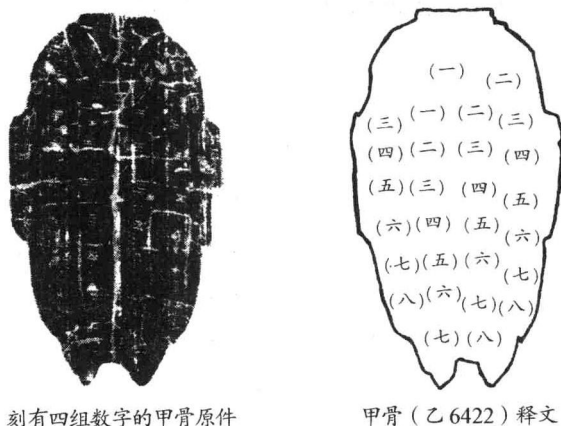 (一)
(二)
(三) (一) (二) (三)
(四) (二) (三) (四)
(五) (三) (四) (五)
(六) (四) (五) (六)
(七) (五) (六) (七)
(八) (六) (七) (八)
(七) (八)
刻有四组数字的甲骨原件
甲骨(乙6422)释文